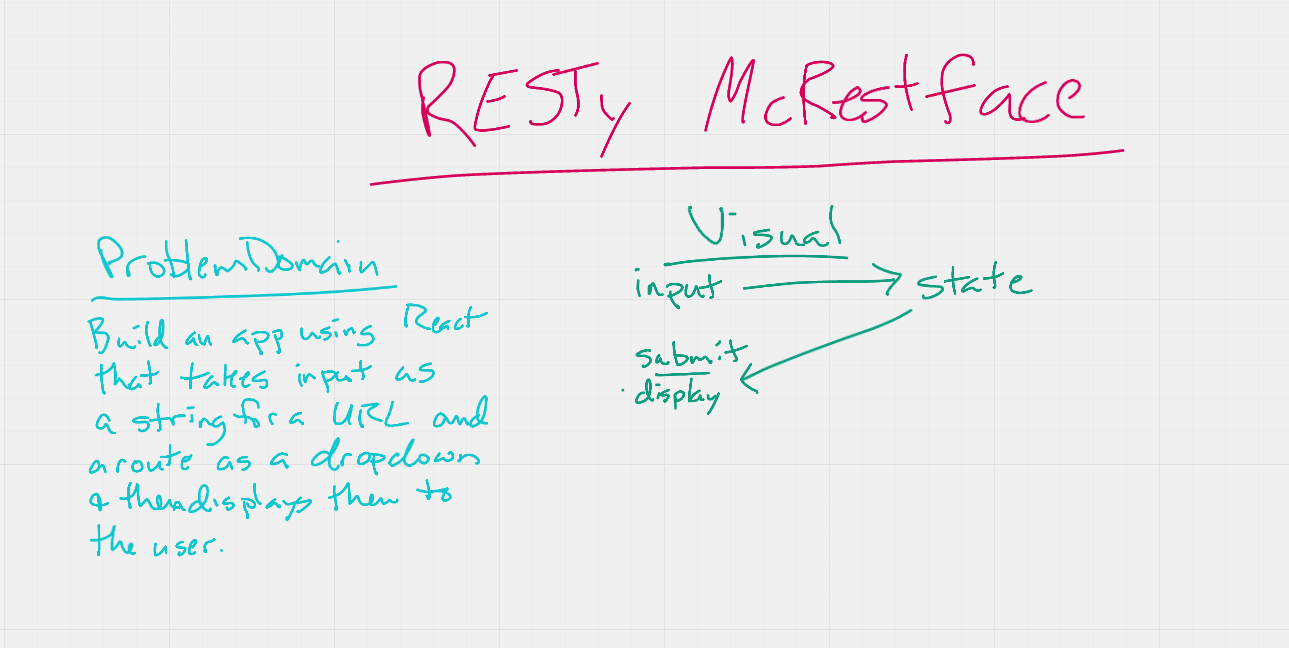 RESTy McRestface
Problem Domain
Build an app using React
that takes input as
a string for a URL and
a route as a dropdown
& then displays them to
the user.
Visual
input → state
submit
display